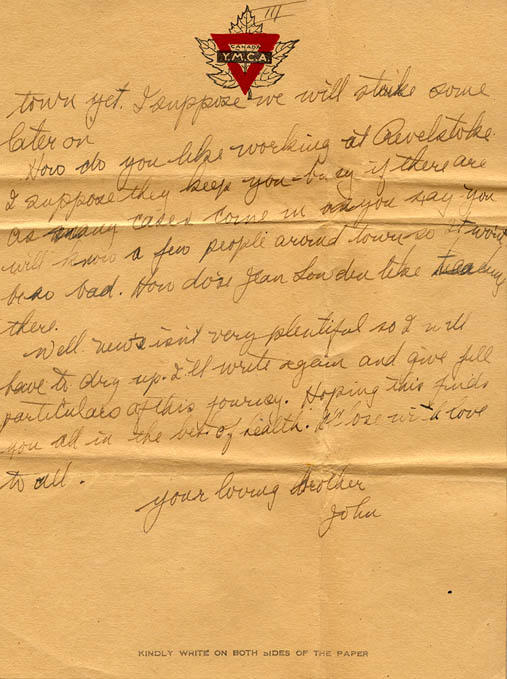 III
CANADA
Y.M.C.A.
town yet. I suppose we will strike some
later on
How do you like working at Revelstoke.
I suppose they keep you busy if there are
as many cases come in as you say you
will know a few people around town so it won't
be so bad. How dose Jean Lowden like teaching
there.
Well news isn't very plentiful so I will
have to dry up. I'll write again and give full
particulars of this journey. Hoping this finds
you all in the best of health. I'll close with love
to all.
your loving brother
John
KINDLY WRITE ON BOTH SIDES OF THE PAPER